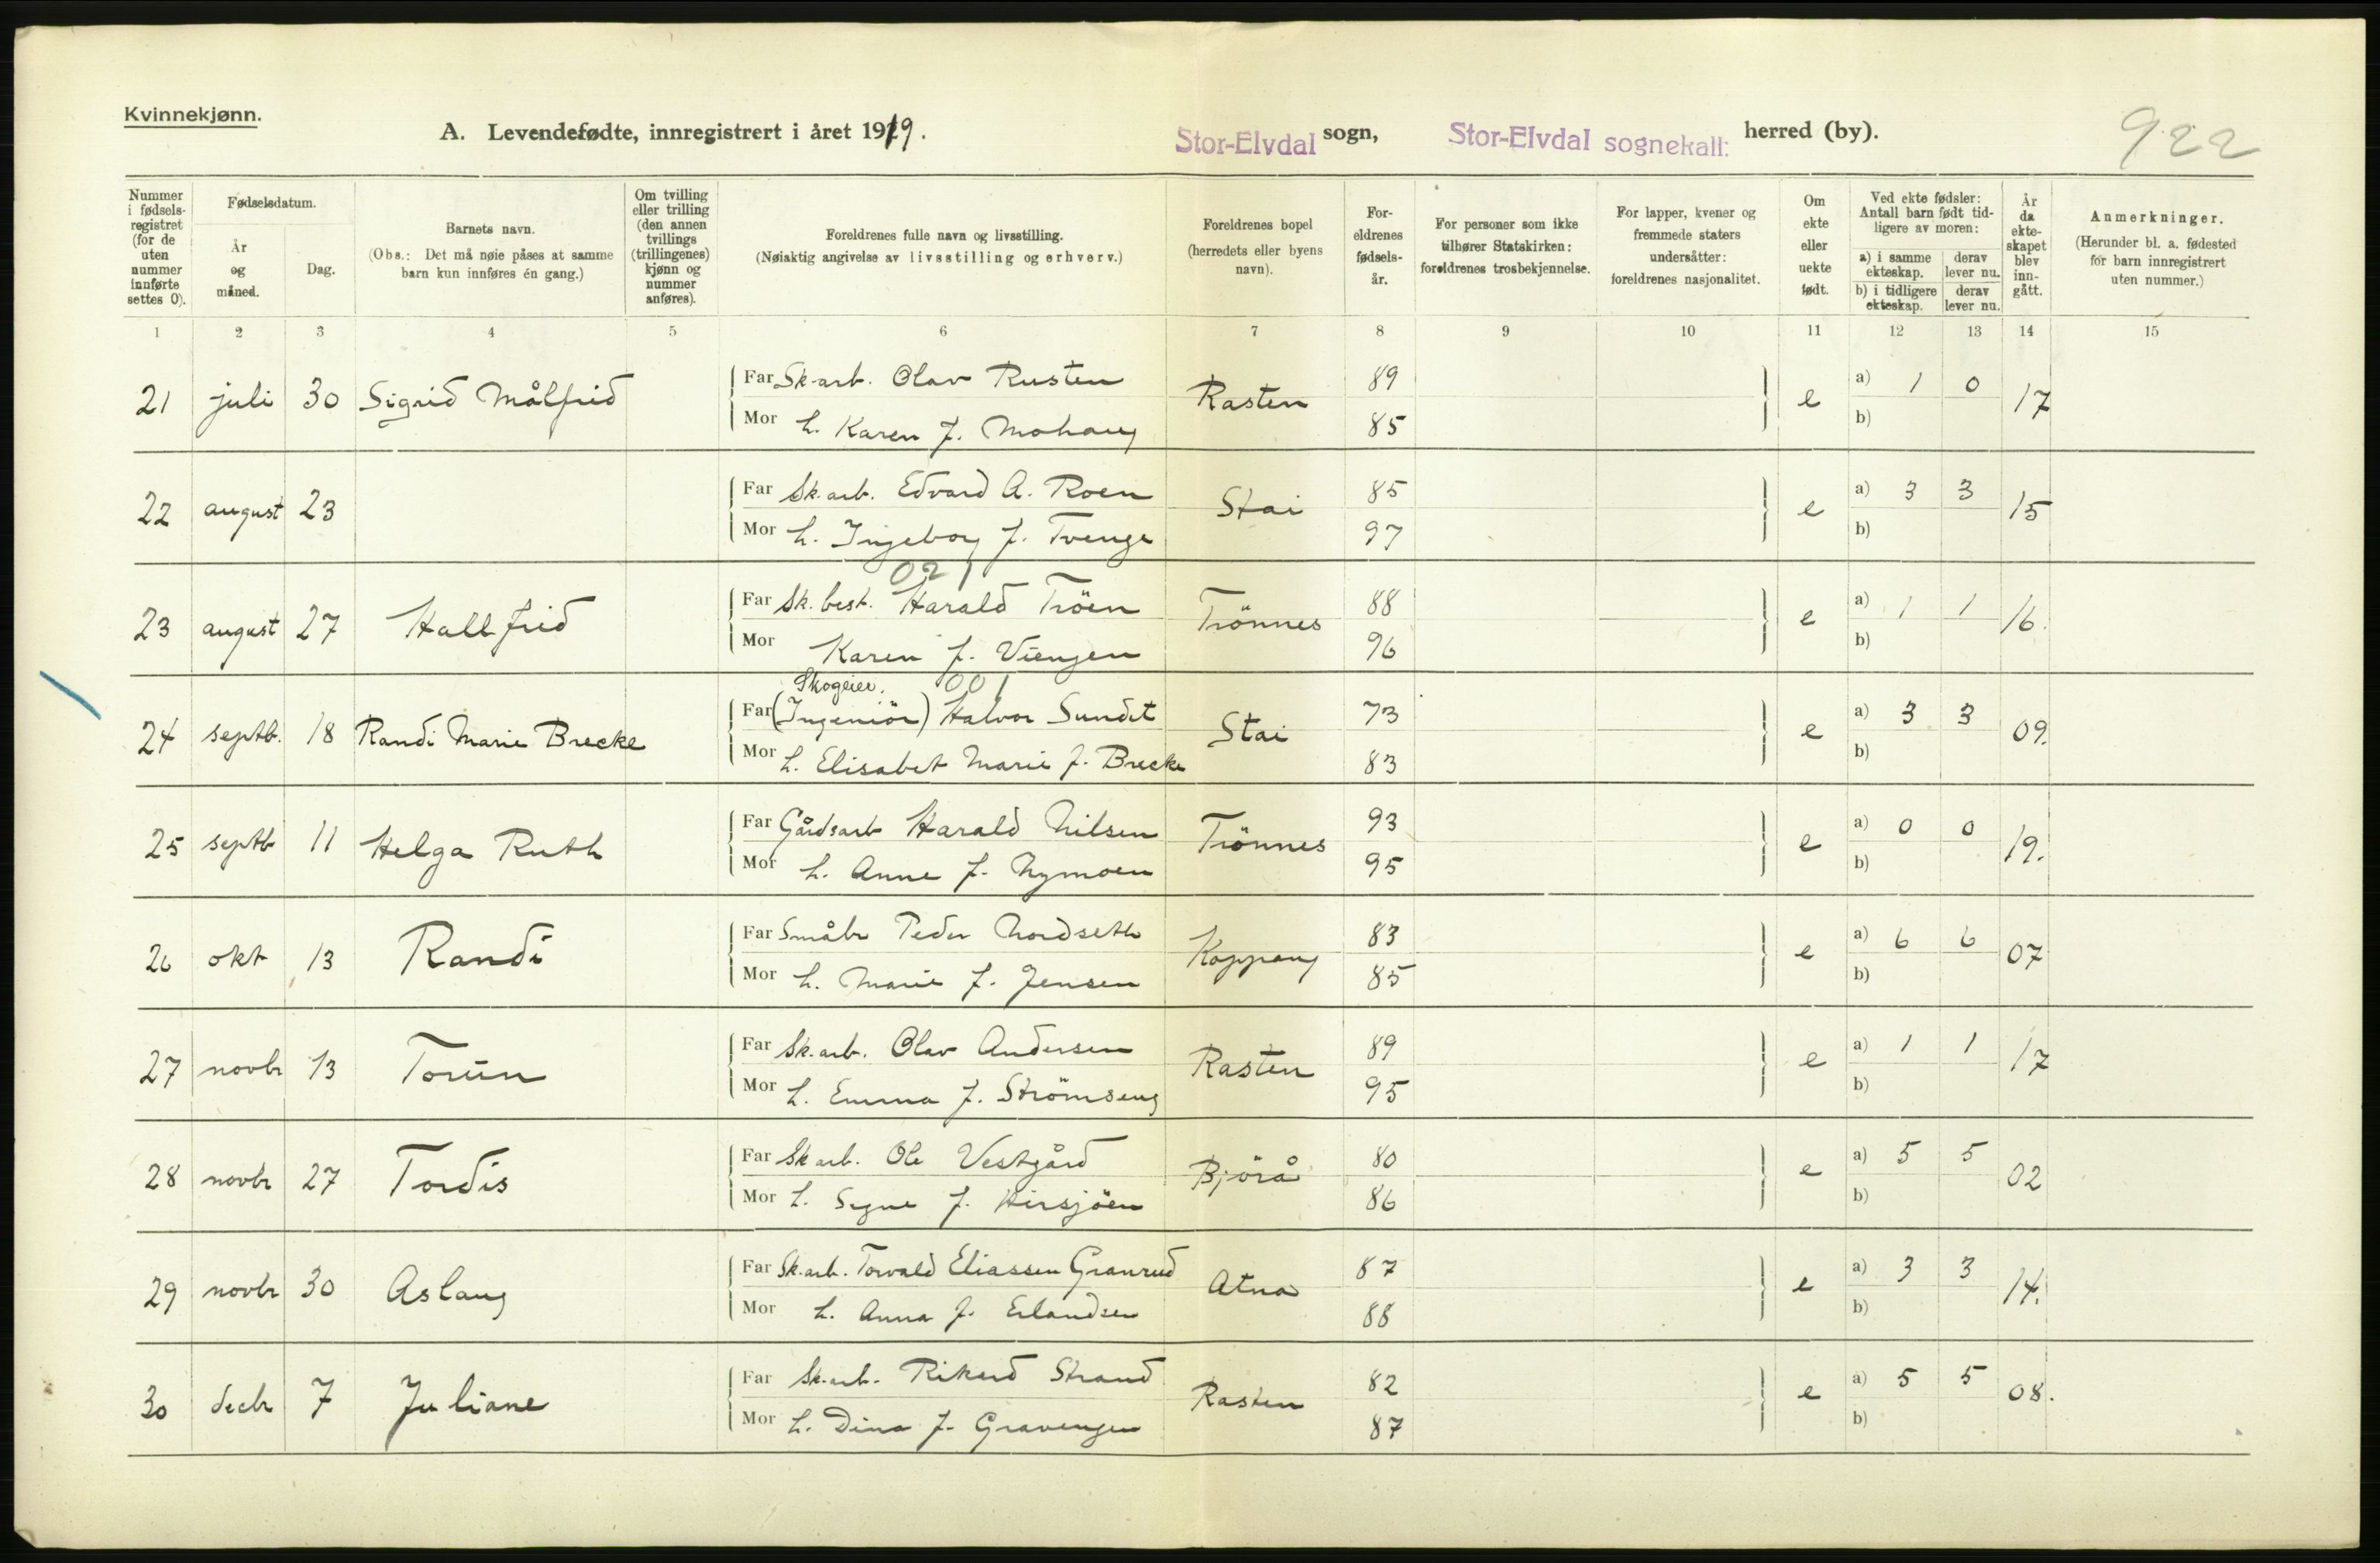 Kvinnekjønn.
A. Levendefødte, innregistrert i året 1919.
Stor-Elvdal sogn, Stor-Elvdal sognekall: herred (by).
922
Nummer i fødselsregistret (for de uten nummer innførte settes 0).
Fødselsdatum.
År og måned.
Dag.
Barnets navn.
(Obs.: Det må nøie påses at samme barn kun innføres én gang.)
Om tvilling eller trilling (den annen tvillings (trillingenes) kjønn og nummer anføres).
Foreldrenes fulle navn og livsstilling.
(Nøiaktig angivelse av livsstilling og erhverv.)
Foreldrenes bopel (herredets eller byens navn).
Foreldrenes fødselsår.
For personer som ikke tilhører Statskirken: foreldrenes trosbekjennelse.
For lapper, kvener og fremmede staters undersåtter: foreldrenes nasjonalitet.
Om ekte eller uekte født.
Ved ekte fødsler: Antall barn født tidligere av moren:
a) i samme ekteskap. derav lever nu.
b) i tidligere ekteskap. derav lever nu.
År da ekteskapet blev inngått.
Anmerkninger.
(Herunder bl. a. fødested for barn innregistrert uten nummer.)
1 2 3 4 5 6 7 8 9 10 11 12 13 14 15
21 juli 30 Sigrid Målfrid Far Sk-arb. Olav Rusten Rasten 89 e a) 1 0 17
Mor h. Karen f. Mohaug 85 b)
22 august 23 Far Sk.arb. Edvard A. Roen Stai 85 e a) 3 3 15
Mor h. Ingeborg f. Tvenge 97 b)
021
23 august 27 Hallfrid Far Sk. best. Harald Tröen Trönnes 88 e a) 1 1 16.
Mor Karen f. Viengen 96 b)
Skogeier. 001
24 septb. 18 Randi Marie Brecke Far (Ingeniör) Halvor Sundet Stai 73 e a) 3 3 09.
Mor h. Elisabet Marie f. Brecke 83 b)
25 septb 11 Helga Ruth Far Gårdsarb Harald Nilsen Trönnes 93 e a) 0 0 19.
Mor h. Anne f. Nymoen 95 b)
26 okt 13 Randi Far Småbr Peder Nordseth Koppang 83 e a) 6 6 07
Mor h. Marie f. Jensen 85 b)
27 novbr 13 Torun Far Sk.arb. Olav Andersen Rasten 89 e a) 1 1 17
Mor h. Emma f. Strömseng 95 b)
28 novbr 27 Tordis Far Sk arb. Ole Vestgård Björå 80 e a) 5 5 02
Mor h. Signe f. Hirsjöen 86 b)
29 novbr 30 Aslaug Far Sk.arb. Torvald Eliassen Granrud Atna 87 e a) 3 3 14.
Mor h. Anna f. Erlandsen 88 b)
30 decbr 7 Juliane Far Sk.arb. Rikard Strand Rasten 82 e a) 5 5 08.
Mor h. Dina f. Gravengen 87 b)